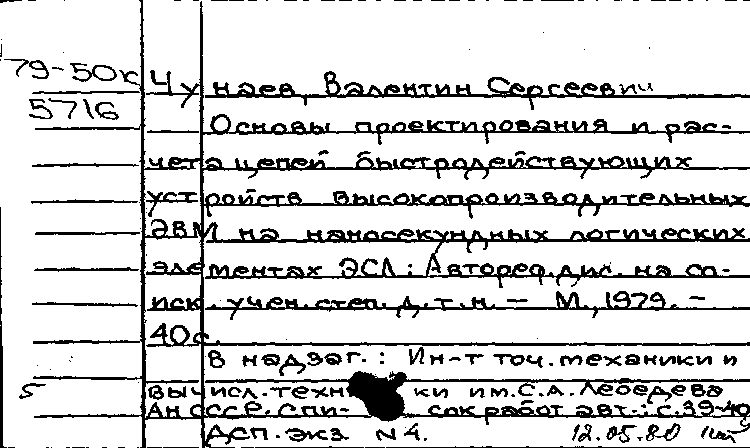 79-50к Чунаев, Валентин Сергеевич
5716
Основы проектирования и рас-
чета цепей быстродействующих
устройств высокопроизводительных
ЭВМ на наносекундных логических
элементах ЭСЛ: Автореф. дис. на со-
иск. учен. степ. д.т.н. – М., 1979. –
40 с.
В надзаг.: Ин-т точ. механики и
5 вычисл. техни ки им. С.А. Лебедева
АН СССР. Спи- сок работ авт.: с. 39-40
ДСП. Экз N 4. 12.05.80